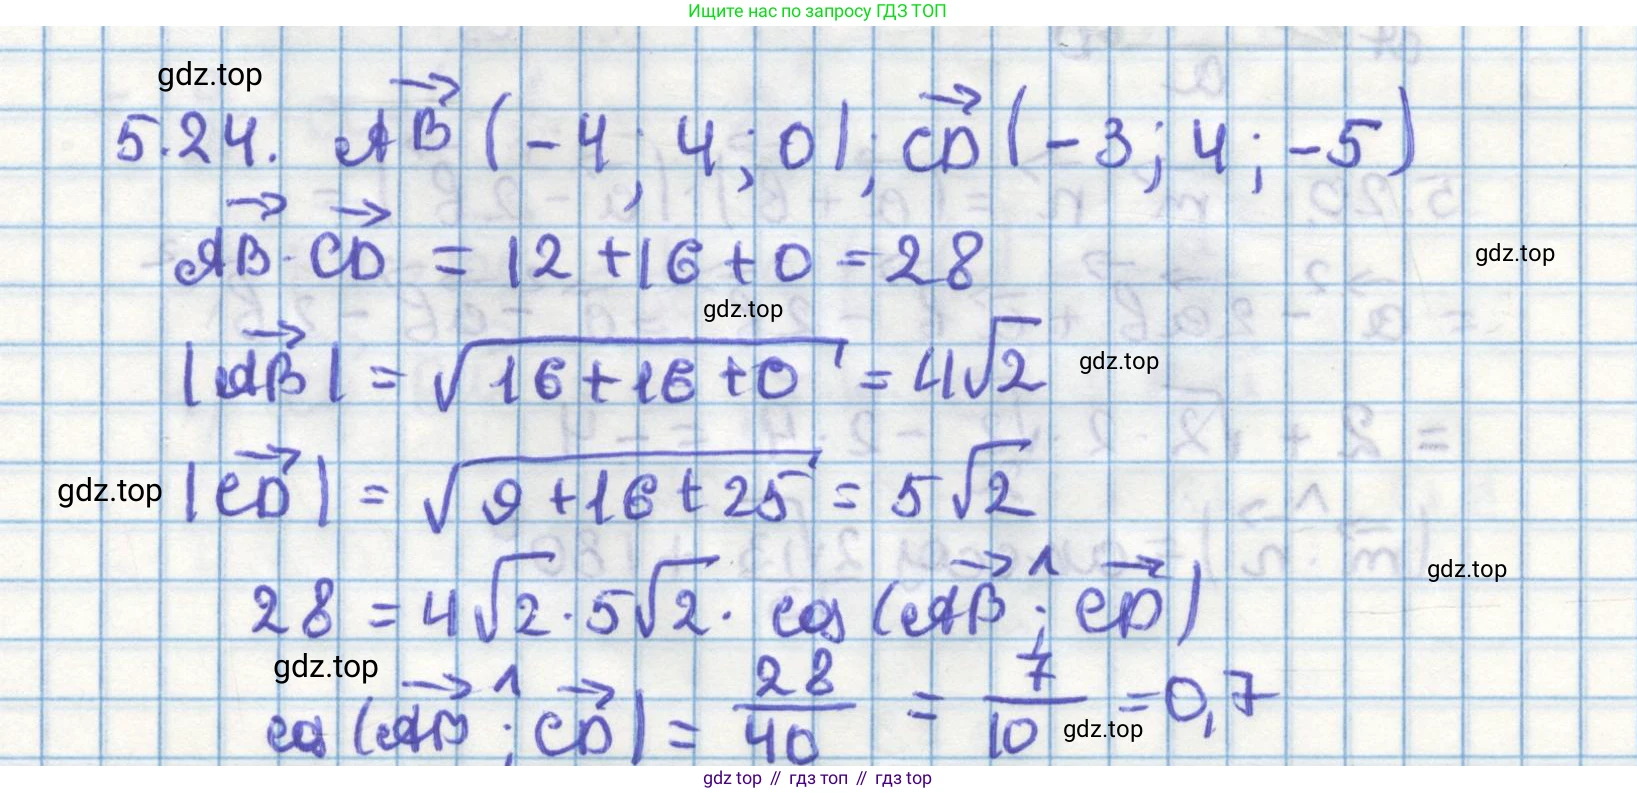 Ищите нас по запросу ГДЗ ТОП
gdz.top
5.24. AB (-4; 4; 0); CD (-3; 4; -5)
AB · CD = 12 + 16 + 0 = 28
gdz.top
gdz.top
|AB| = √16 + 16 + 0 = 4√2
gdz.top
gdz.top
|CD| = √9 + 16 + 25 = 5√2
gdz.top
28 = 4√2 · 5√2 · cos (AB ^; CD)
gdz.top
cos (AB ^; CD) = 28/40 = 7/10 = 0,7
gdz.top
gdz top // гдз топ // гдз top